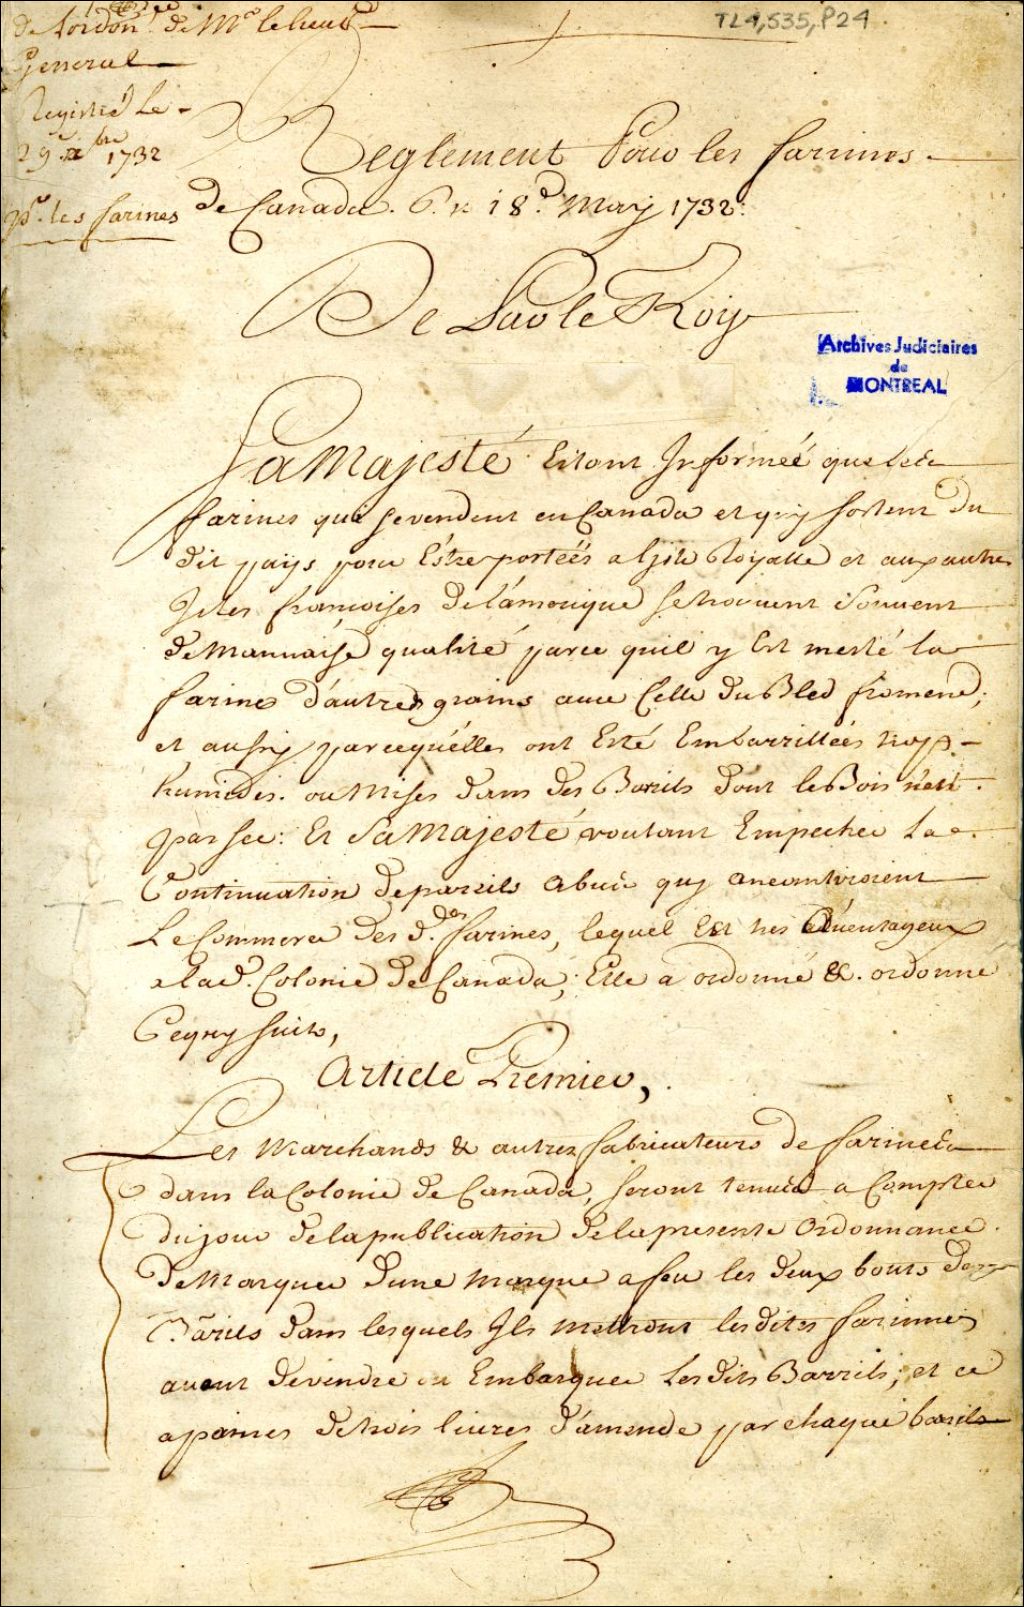 de Lordon.ce de Mr le lieut.
General
Registré Le
29e xbre 1732
pr. les farines
TL4,S35,P24
Reglement Pour les farines
de Canada. 18.e May 1732.
De Par le Roy
Archives Judiciaires
de
MONTREAL
Sa Majesté Estant Informéé que les
farines qui se vendent en Canada et quy sortent Du
dit pays pour Estre portéés a lisle Royalle et aux autres
Isles françoises de l'amerique se trouvent souvent
de Mauvaise qualité parce quil y Est meslé la
farine d'autres grains avec Celle du Bled froment;
et aussy parcequ'elles ont Esté Embarrilléés trop
humides. ou Mises dans des Barils dont le Bois n'est
pas sec: Et Sa Majesté voulant Empecher La
Continuation de pareils abus quy aneantiroient
Le Commerce des d.es farines, lequel Est tres Avantageux
a lad. Colonie de Canada; Elle a ordonné &. ordonne
Ce quy suit,
Article Premier,
Les Marchands & autres fabricateurs de farines
dans la Colonie de Canada, seront tenus a Compter
du jour de la publication de la presente Ordonnance
de Marquer d'une marque a feu les deux bouts des
Barils dans lesquels Ils mettront lesdites farinnes
avant de vendre ou Embarquer Lesdits Barrils; et ce
a paines de trois livres d'amende par chaque barils